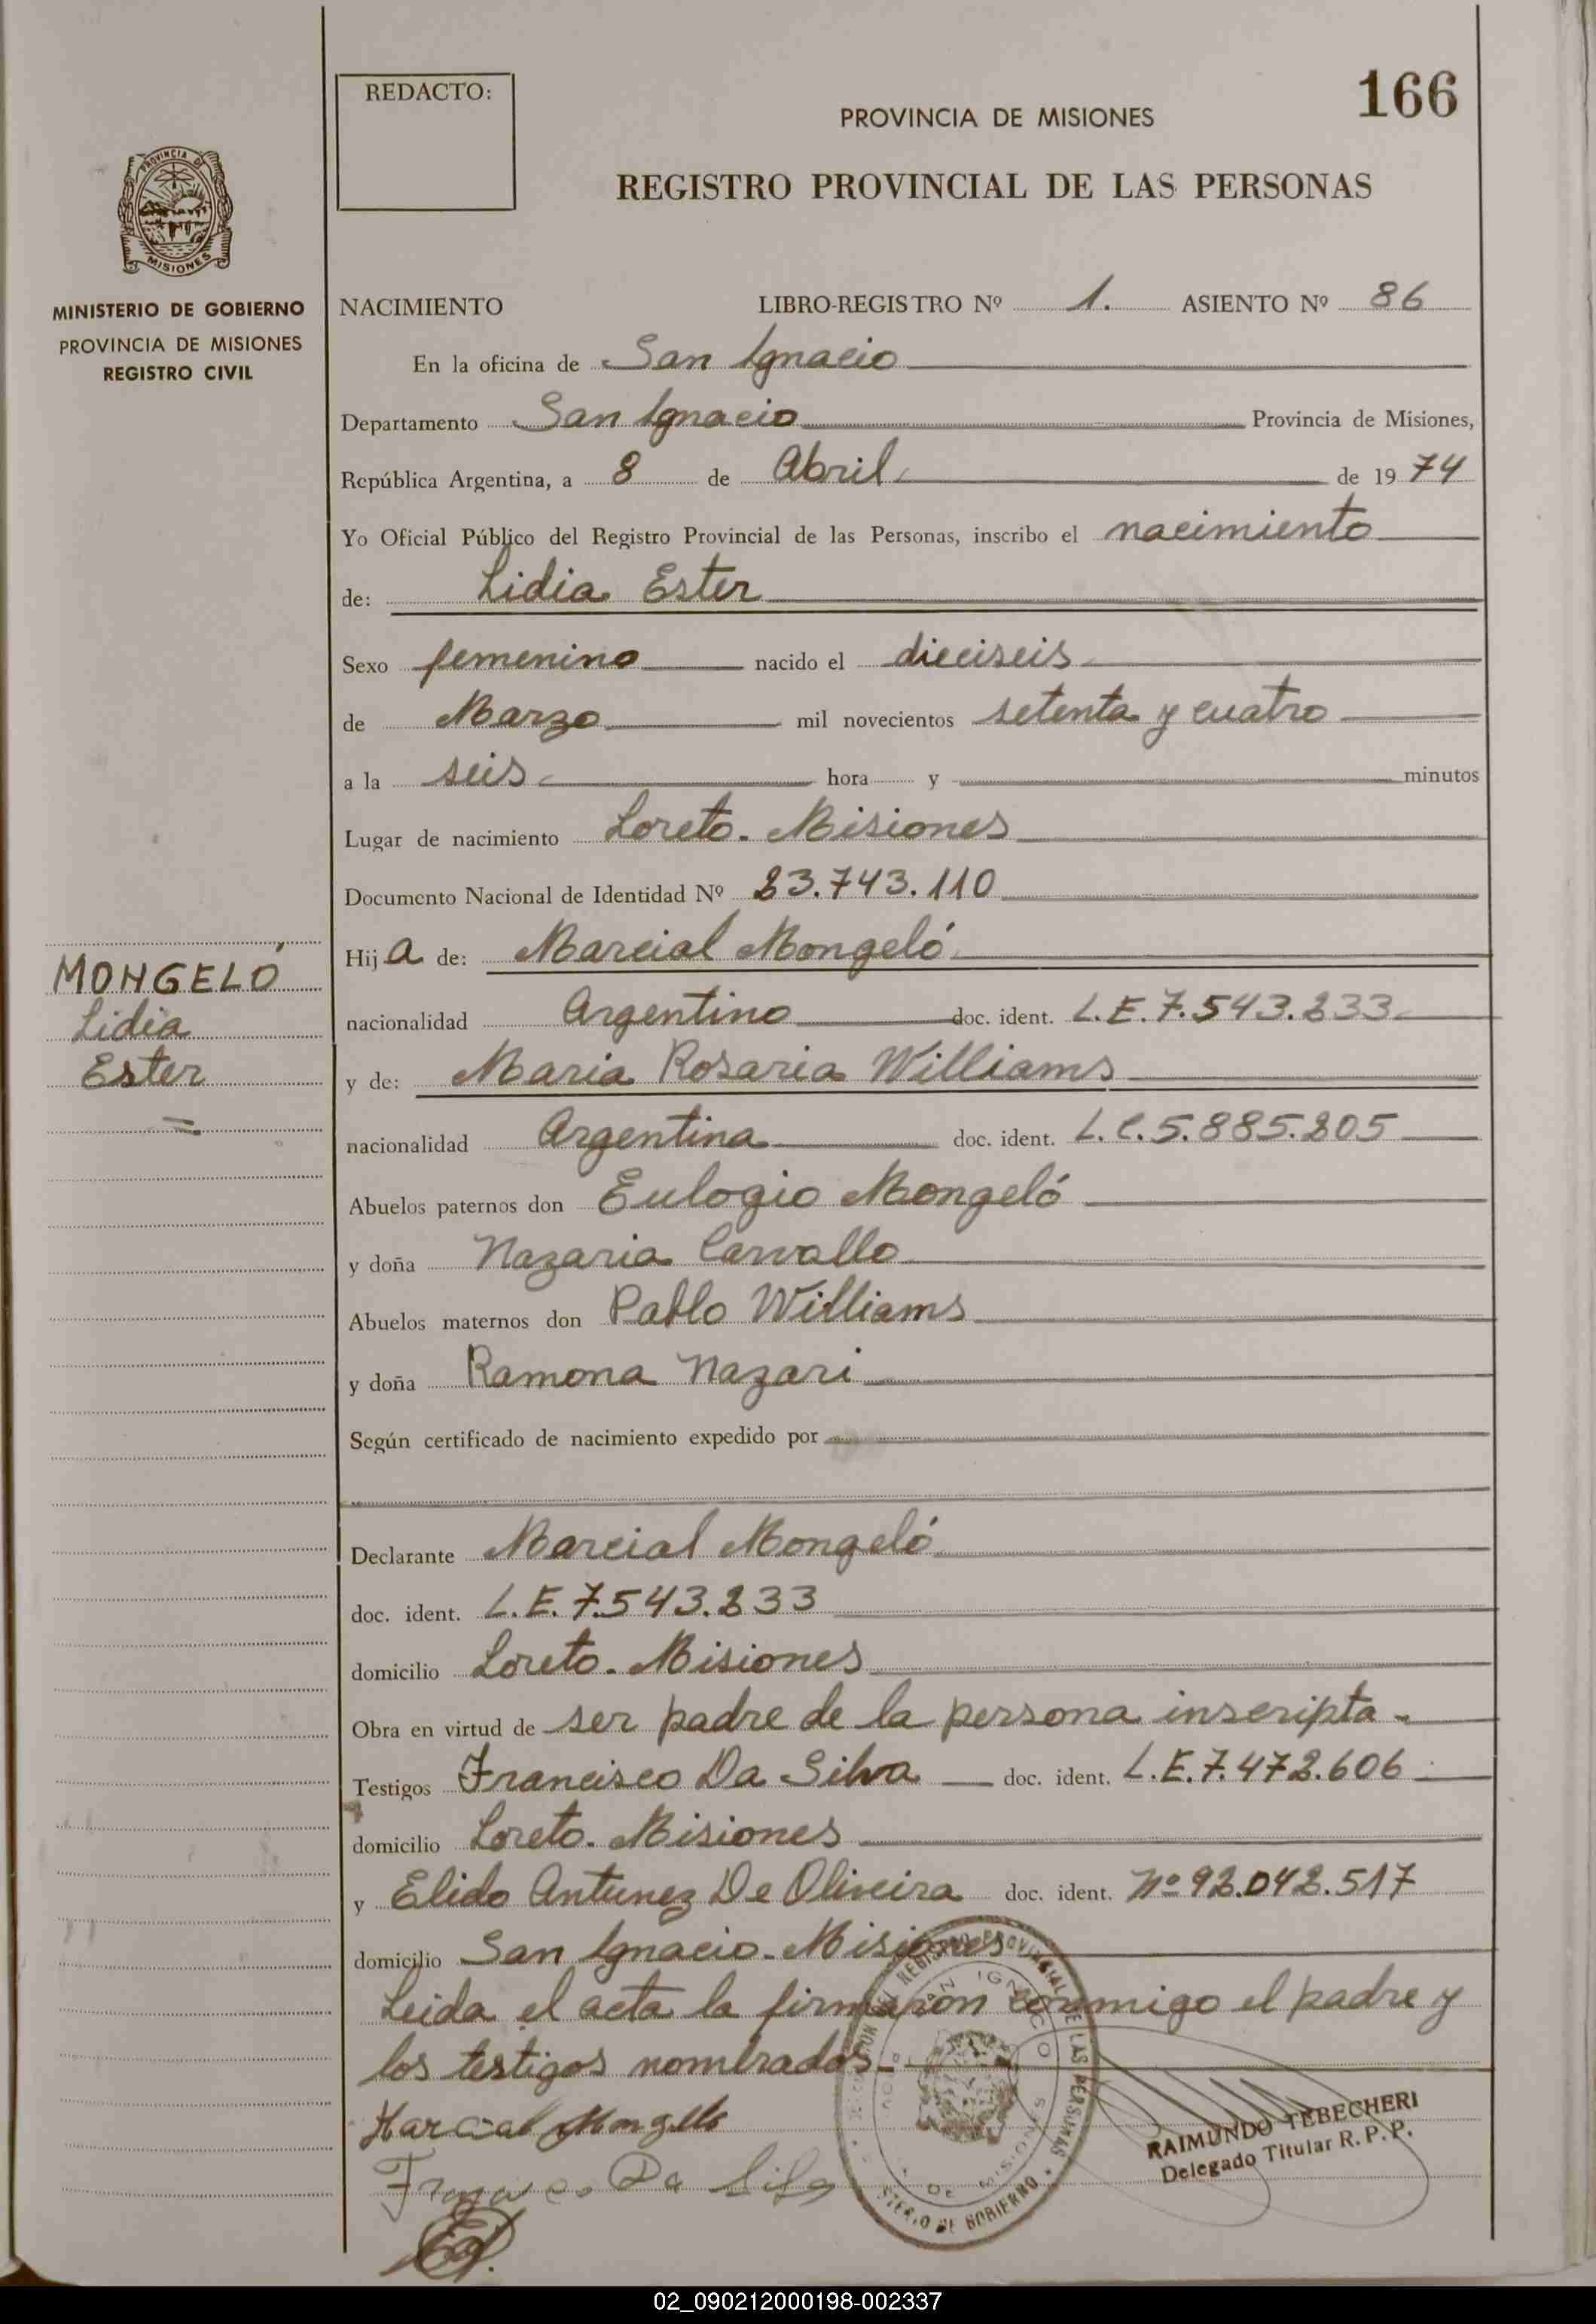 REDACTO:
166
PROVINCIA DE MISIONES
REGISTRO PROVINCIAL DE LAS PERSONAS
PROVINCIA DE
MISIONES
MINISTERIO DE GOBIERNO
PROVINCIA DE MISIONES
REGISTRO CIVIL
NACIMIENTO LIBRO-REGISTRO Nº 1. ASIENTO Nº 86
En la oficina de San Ignacio
Departamento San Ignacio Provincia de Misiones,
República Argentina, a 8 de Abril de 1974
Yo Oficial Público del Registro Provincial de las Personas, inscribo el nacimiento
de: Lidia Ester
Sexo femenino nacido el dieciseis
de Marzo mil novecientos setenta y cuatro
a la seis hora y minutos
Lugar de nacimiento Loreto - Misiones
Documento Nacional de Identidad Nº 23.743.110
Hija de: Marcial Mongeló
nacionalidad Argentino doc. ident. L.E. 7.543.233
y de: Maria Rosaria Williams
nacionalidad Argentina doc. ident. L.C. 5.885.205
Abuelos paternos don Eulogio Mongeló
y doña Nazaria Carvallo
Abuelos maternos don Pablo Williams
y doña Ramona Nazari
Según certificado de nacimiento expedido por
MONGELÓ
Lidia
Ester
Declarante Marcial Mongeló
doc. ident. L.E. 7.543.233
domicilio Loreto - Misiones
Obra en virtud de ser padre de la persona inscripta -
Testigos Francisco Da Silva doc. ident. L.E. 7.472.606
domicilio Loreto - Misiones
y Elido Antunez De Oliveira doc. ident. Nº 92.042.517
domicilio San Ignacio - Misiones
Leida el acta la firmaron conmigo el padre y
los testigos nombrados -
Marcial Mongelo
RAIMUNDO TEBECHERI
Delegado Titular R. P. P.
02_090212000198-002337